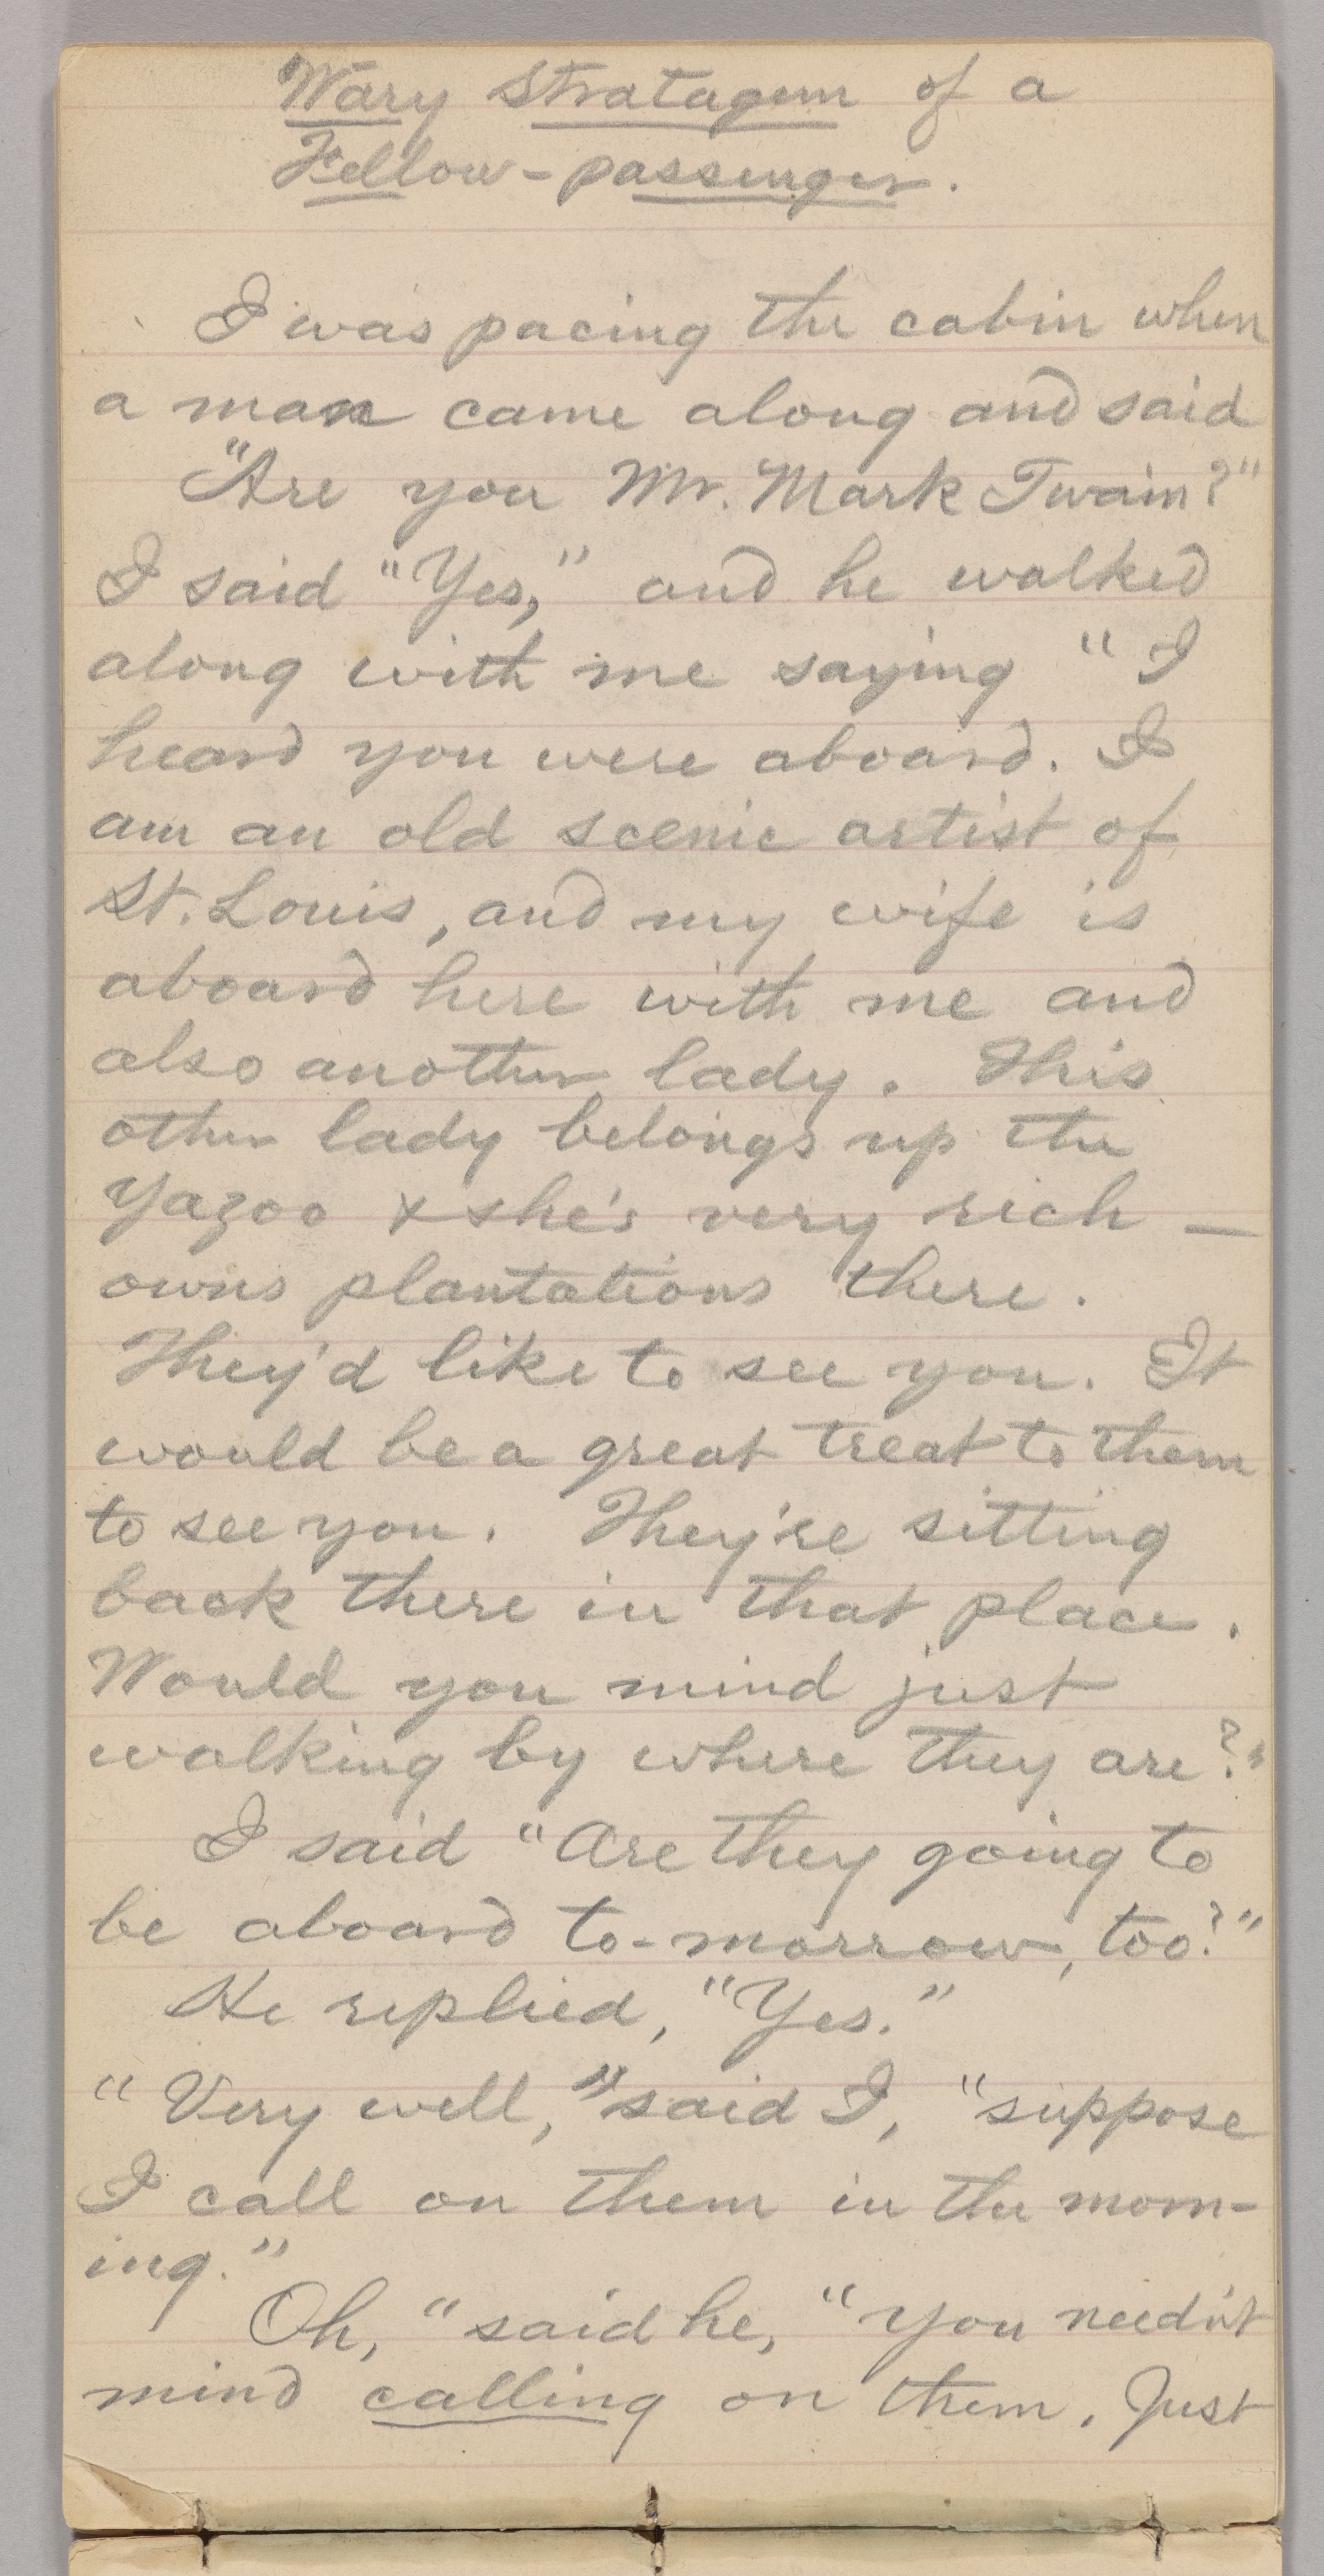 Wary Stratagem of a
Fellow-passenger.
I was pacing the cabin when
a man came along and said
"Are you Mr. Mark Twain?"
I said "Yes," and he walked
along with me saying "I
heard you were aboard. I
am an old scenic artist of
St. Louis, and my wife is
aboard here with me and
also another lady. This
other lady belongs up the
Yazoo & she's very rich —
owns plantations there.
They'd like to see you. It
would be a great treat to them
to see you. They're sitting
back there in that place.
Would you mind just
walking by where they are?"
I said "Are they going to
be aboard to-morrow, too?"
He replied, "Yes."
"Very well," said I, "suppose
I call on them in the morn-
ing."
Oh, "said he, "you needn't
mind calling on them. Just